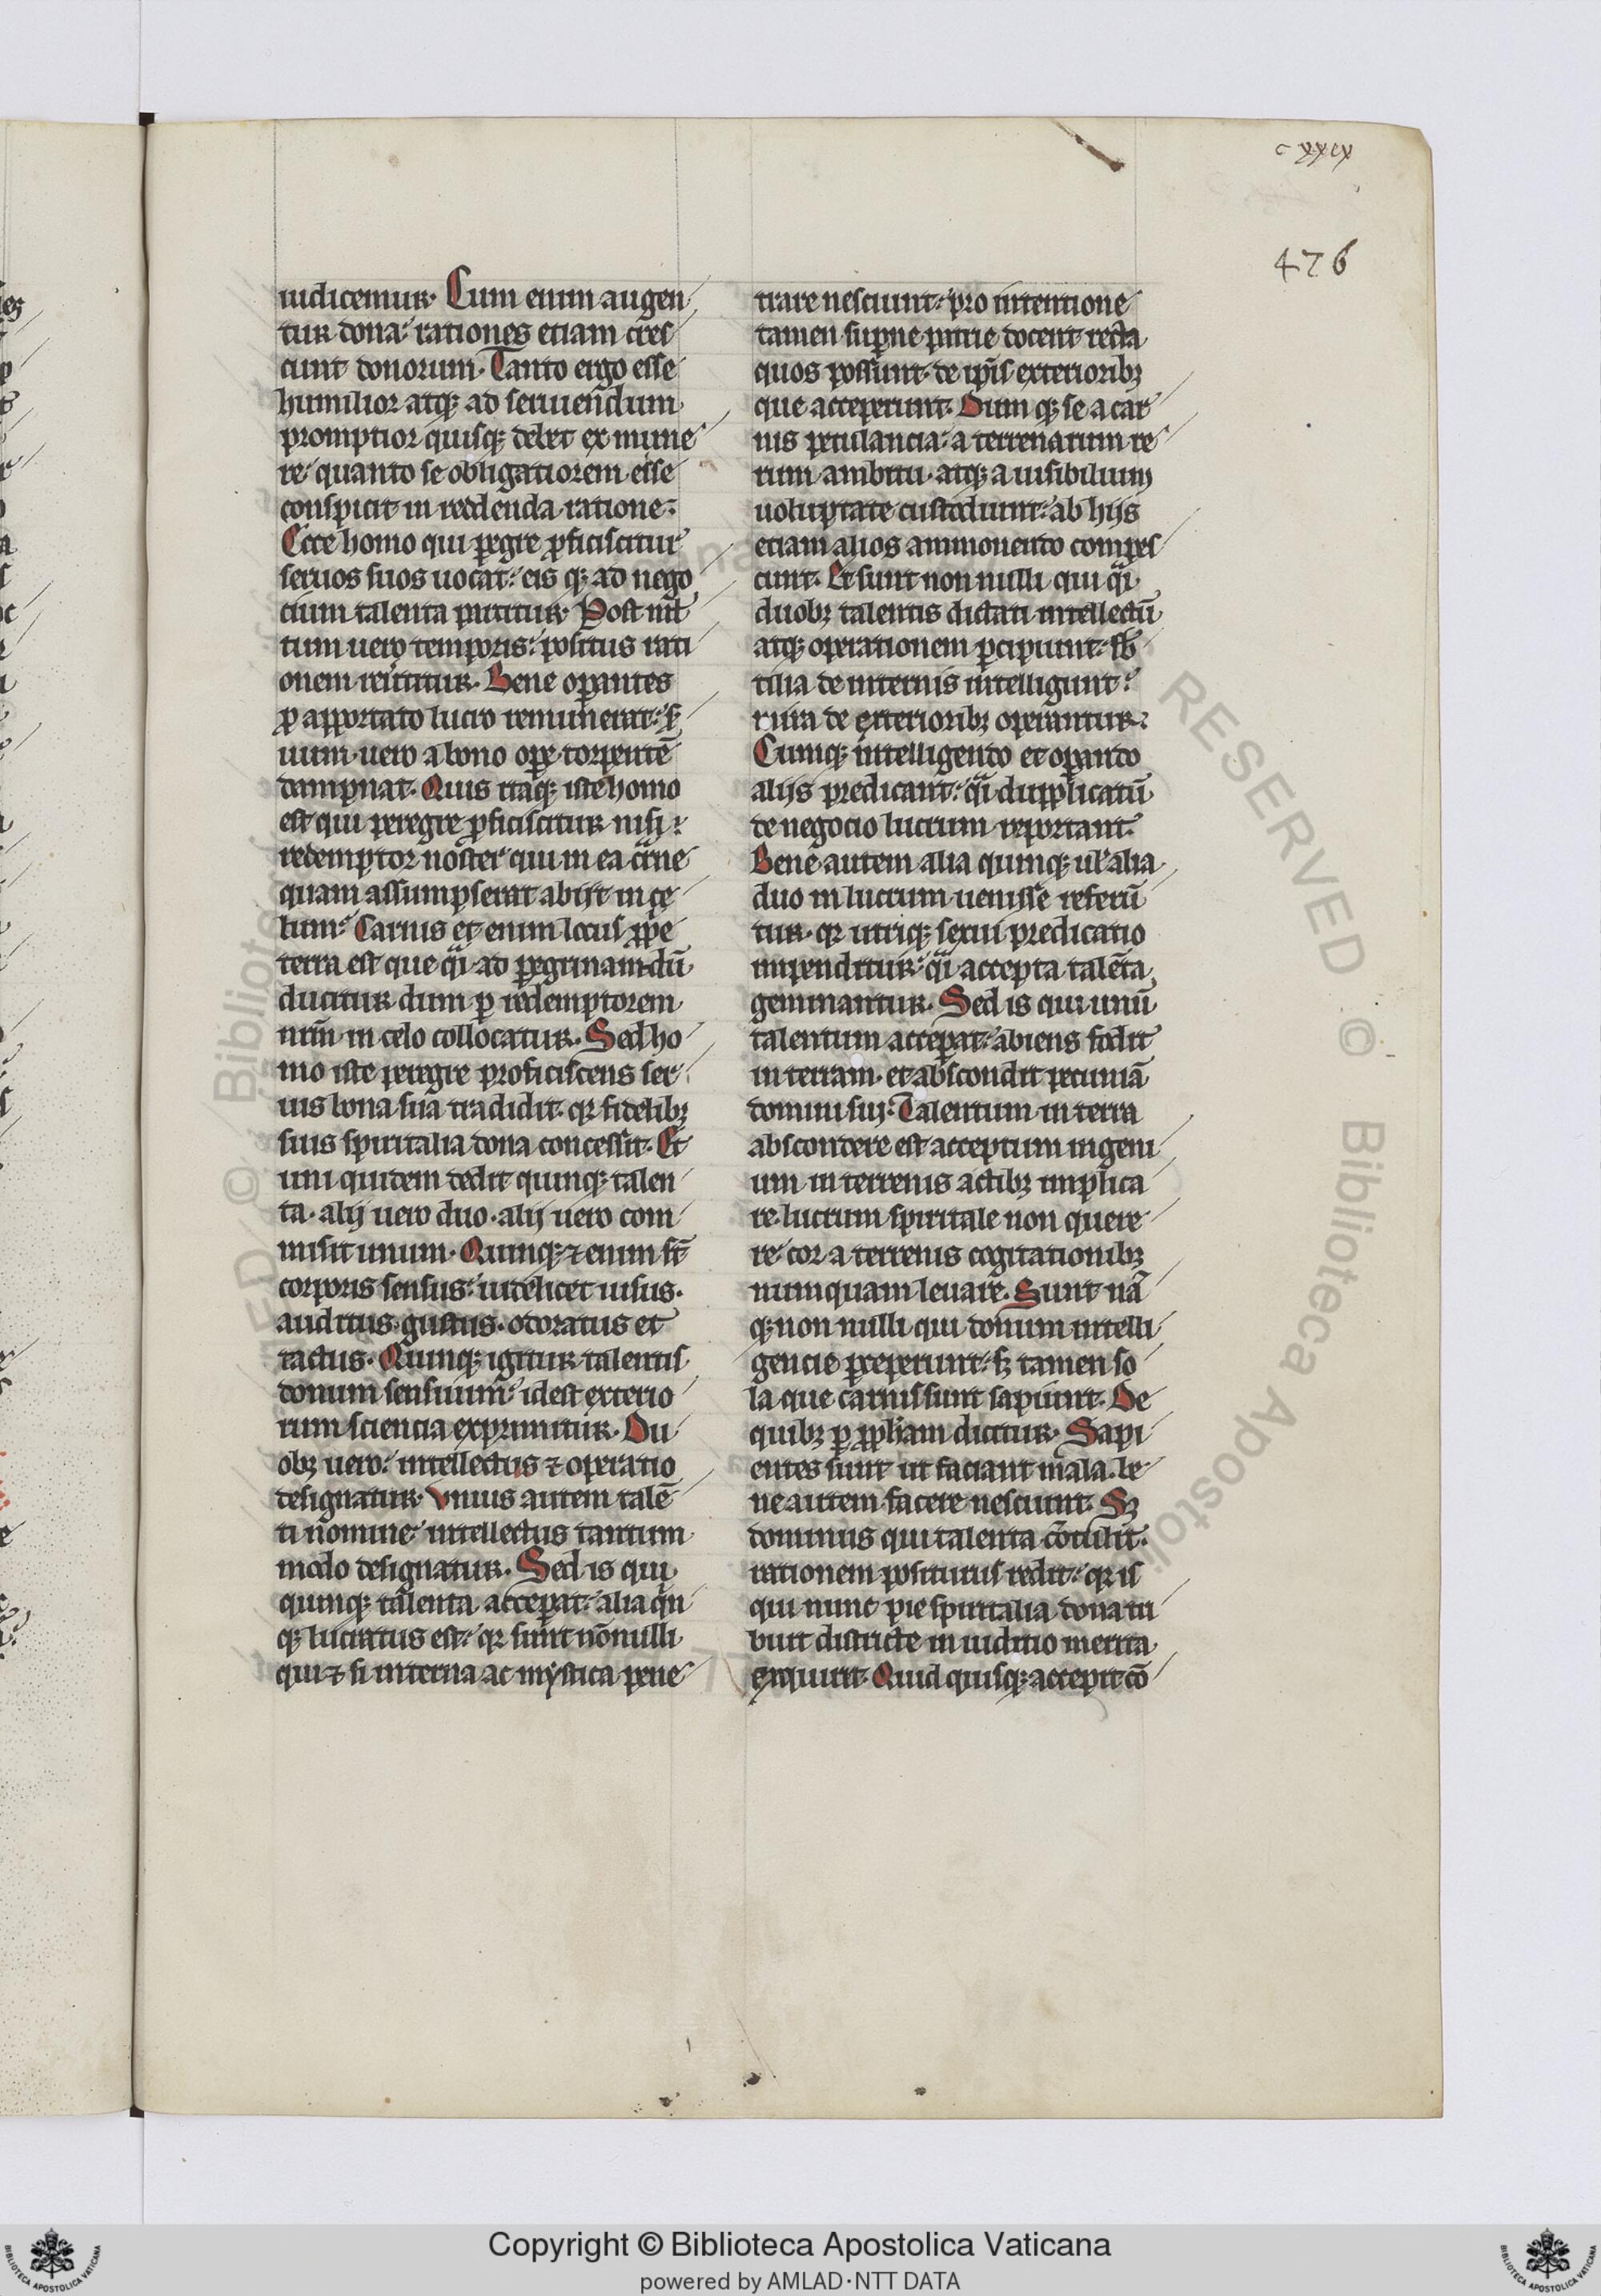 c xxix
476
iudicemur. Cum enim augen
tur dona: rationes etiam cres
cunt donorum. Tanto ergo esse
humilior atq; ad seruiendum
promptior quisq; debet ex mune
re: quanto se obligatiorem esse
conspicit in reddenda ratione:
Ecce homo qui peregre ꝓficiscitur
seruos suos uocat: eis q; ad nego
cium talenta partitur. Post ml̄
tum uero temporis: positurus rati
onem reuertitur. Bene operantes
ꝓ apportato lucro remunerat: ser
uum uero a bono oꝑe torpentē
dampnat. Quis itaq; iste homo
est qui peregre ꝓficiscitur nisi:
redemptor noster qui in ea carne
quam assumpserat abijt in ce
lum: Carnis et enim locus ꝓp̄e
terra est que q̄i ad ꝑegrinam dū
ducitur dum ꝑ redemptorem
nr̄m in celo collocatur. Sed ho
mo iste peregre proficiscens ser
uis bona sua tradidit. qꝛ fidelibꝫ
suis spiritalia dona concessit. Et
uni quidem dedit quinq; talen
ta. alij uero duo. alij uero com
misit unum. Quinq; ⁊ enim st̄
corporis sensus: uidelicet uisus.
auditus. gustus. odoratus et
tactus. Quinq; igitur talentis
donum sensuum: idest exterio
rum sciencia exprimitur. Du
obꝫ uero: intellectus ⁊ operatio
designatur. Vnius autem talē
ti nomine: intellectus tantum
modo designatur. Sed is qui
quinq; talenta acceperat: alia quin
q; lucratus est: qꝛ sunt nōnulli
qui ⁊ si interna ac mystica pene
trare nesciunt: pro intentione
tamen supne patrie docent recta
quos possunt. de ip̄is exterioribꝫ
que acceperunt. Dum q; se a car
nis petulancia: a terrenarum re
rum ambitu. atq; a uisibilium
uoluptate custodiunt: ab hijs
etiam alios ammonendo compes
cunt. Et sunt non nulli qui q̄i
duobꝫ talentis ditati intellectū
atq; operationem ꝑcipiunt: sub
tilia de internis intelligunt:
mira de exterioribꝫ operantur:
Cumq; intelligendo et operando
alijs predicant: q̄i dupplicatū
de negocio lucrum reportant.
Bene autem alia quinq; ul' alia
duo in lucrum uenisse referū
tur. qꝛ utriq; sexui predicatio
impenditur: q̄i accepta talēta
geminantur. Sed is qui unū
talentum acceperat: abiens fodit
in terram. et abscondit pecuniā
domini sui: Talentum in terra
abscondere est acceptum ingeni
um in terrenis actibꝫ implica
re. lucrum spiritale non quere
re: cor a terrenis cogitationibꝫ
numquam leuare. Sunt nā
q; non nulli qui donum intelli
gencie perceperunt: sꝫ tamen so
la que carnis sunt sapiunt. De
quibꝫ ꝑ ꝓph̄am dicitur. Sapi
entes sunt ut faciant mala. be
ne autem facere nesciunt. Sꝫ
dominus qui talenta c̄otulit.
rationem positurus redit: qꝛ is
qui nunc pie spiritalia dona tri
buit districte in iuditio merita
exquirit. Quid quisq; accepit cō
RESERVED © Biblioteca Apostolica
Copyright © Biblioteca Apostolica Vaticana
powered by AMLAD·NTT DATA